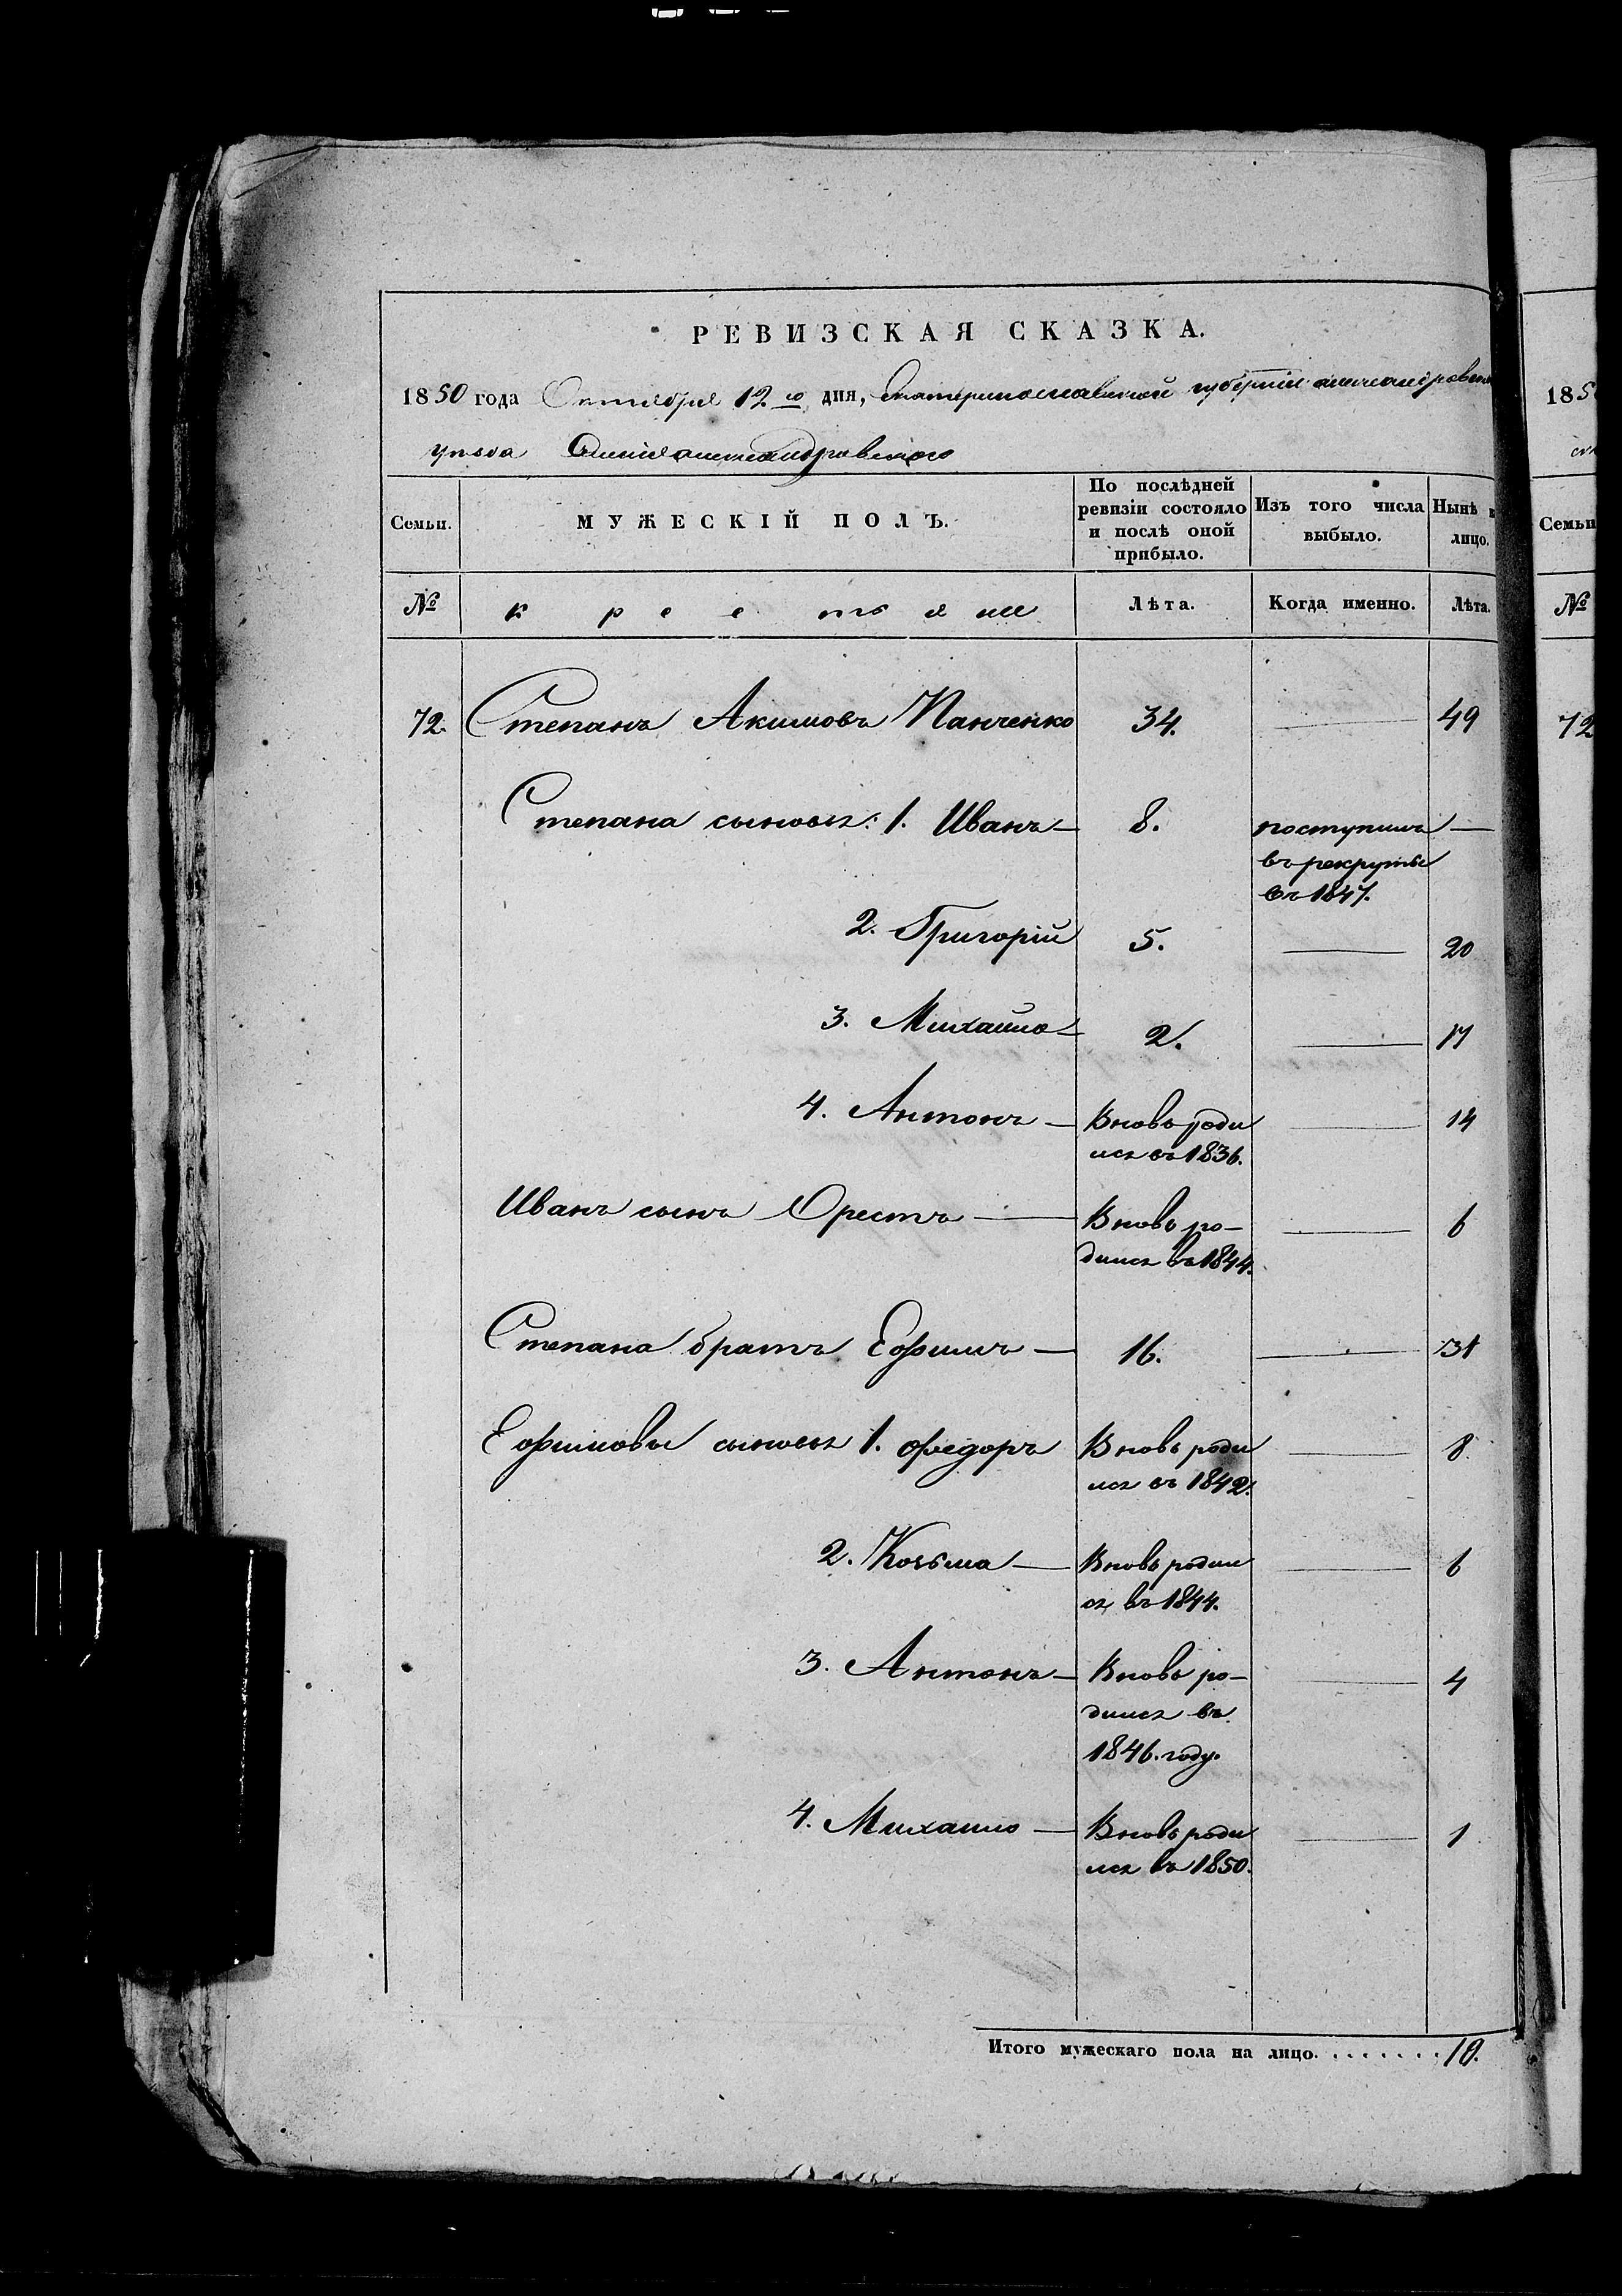 РЕВИЗСКАЯ СКАЗКА.
1850 года Октября 12го дня, Екатеринославской губернии Александровскаго
уезда
Семьи. МУЖЕСКІЙ ПОЛЪ. По послѣдней ревизіи состояло и послѣ оной прибыло. Изъ того числа выбыло. Нынѣ лицо.
№ крестьяне Лѣта. Когда именно. Лѣта.
72. Степанъ Акимовъ Панченко 34. — 49
Степана сыновья: 1. Иванъ — 8. поступилъ —
въ рекруты
въ 1847.
2. Григорій 5. — 20
3. Михайло — 2. — 17
4. Антонъ — Вновь роди — 14
лся въ 1836.
Иванъ сынъ Орестъ — Вновь ро- — 6
дился въ 1844.
Степана братъ Ефимъ — 16. — 31
Ефимовы сыновья 1. Федоръ Вновь роди — 8
лся въ 1842.
2. Козьма — Вновь родил — 6
ся въ 1844.
3. Антонъ — Вновь ро- — 4
дился въ
1846. году.
4. Михайло — Вновь роди — 1
лся въ 1850.
Итого мужескаго пола на лицо. . . . . . . . 10.
185
Семьи
№
72